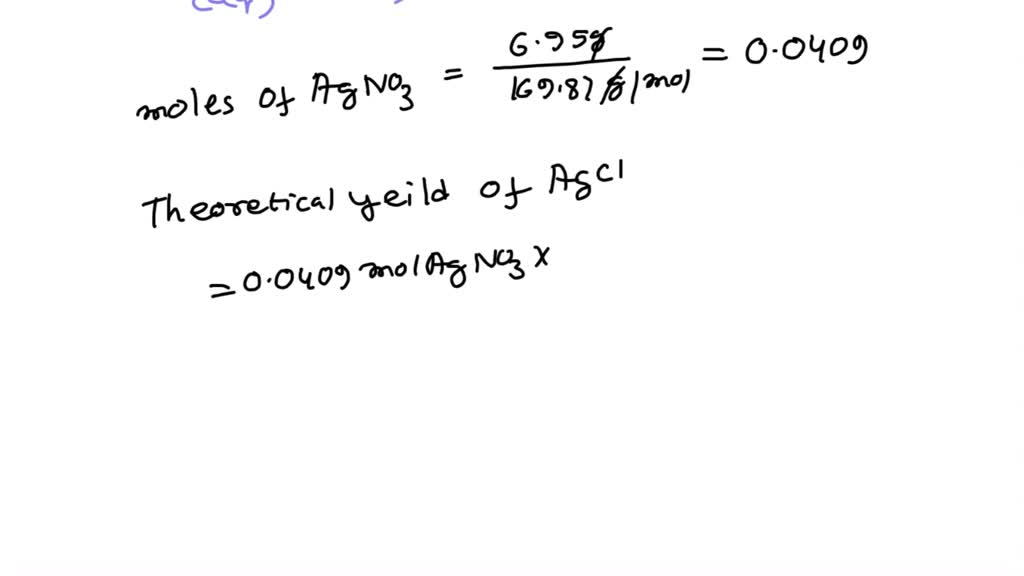 (aq)
moles of AgNO3 = 6.95g / 169.87 g/mol = 0.0409
Theoretical yeild of AgCl
= 0.0409 mol AgNO3 x